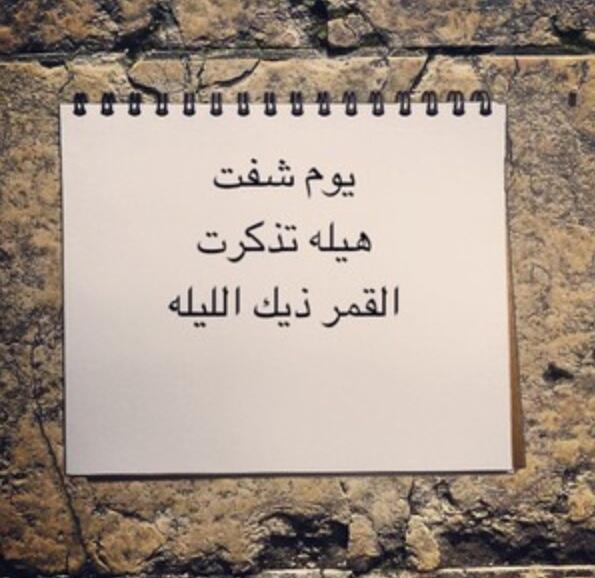 يوم شفت
هيله تذكرت
القمر ذيك الليله